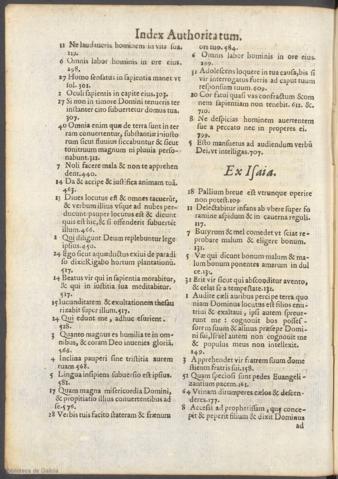 Index Authoritatum.
11 Ne laudaueris hominem in vita sua.
119.
6 Omnis labor hominis in ore eius.
298.
27 Homo sensatus in sapientia manet vt
sol. 302.
2 Oculi sapientis in capite eius. 303.
17 Si non in timore Domini tenueris ter
instanter cito subuertetur domus tua.
307.
40 Omnia enim quæ de terra sunt in ter
ram conuertentur, substantiæ iniusto-
rum sicut fluuius siccabuntur & sicut
tonitruum magnum in pluuia perso-
nabunt. 312.
7 Noli facere mala & non te apprehen
dent. 440.
24 Da & accipe & iustifica animam tuā.
463.
23 Diues locutus est & omnes tacuerūt,
& verbum illius vsque ad nubes per-
ducunt pauper locutus est & dicunt
quis est hic, & si offenderit subuertēt
illum. 466.
2 Qui diligunt Deum replebuntur lege
ipsius. 450.
24 Ego sicut aquæductus exiui de paradi
so dixi: Rigabo hortum plantationū.
517.
14 Beatus vir qui in sapientia morabitur,
& qui in iustitia sua meditabitur.
517.
15 Iucunditatem & exultationem thesau
rizabit super illum. 517.
24 Qui edunt me adhuc esurient.
528.
3 Quanto magnus es humilia te in om-
nibus, & coram Deo inuenies gloriā.
565.
4 Inclina pauperi sine tristitia aurem
tuam 568.
5 Lingua insipiens subuersio est ipsius.
581.
17 Quam magna misericordia Domini,
& propitiatio illius conuertentibus ad
se. 576.
28 Verbis tuis facito stateram & frænum
ori tuo. 584.
6 Omnis labor hominis in ore eius.
209.
32 Adolescens loquere in tua causa, bis si
vir interrogatus fueris ad caput tuum
responsum tuum. 609.
20 Cor fatui quasi vas confractum & om
nem sapientiam non tenebit. 612. &
710.
8 Ne despicias hominem auertentem
sue a peccato nec in properes ei.
799.
5 Esto mansuetus ad audiendum verbū
Dei, vt intelligas. 707.
Ex Isaia.
18 Pallium breue est vtrunque operire
non potest. 109
11 Delectabitur infans ab vbere super fo
ramine aspidum & in cauerna reguli.
117.
7 Butyrum & mel comedet vt sciat re-
probare malum & eligere bonum.
131.
5 Væ qui dicunt bonum malum & ma-
lum bonum ponentes amarum in dul
ce. 131.
32 Erit vir sicut qui absconditur a vento,
& celat se a tempestate. 131.
1 Audite cæli auribus percipe terra quo
niam Dominus locutus est filios enu-
triui & exaltaui, ipsi autem spreue-
runt me: cognouit bos posses-
sorem suum & asinus præsepe Domi-
ni sui, Israel autem non cognouit me
& populus meus non intellexit.
149.
3 Apprehendet vir fratrem suum dome
sticum fratris sui. 158.
52 Quam speciosi sunt pedes Euangeli-
zantium pacem. 161.
64 Vtinam dirumperes cælos & descen-
deres. 177.
8 Accessi ad prophetissam, quæ conce-
pit & peperit filium & dixit Dominus
ad
Biblioteca de Galicia